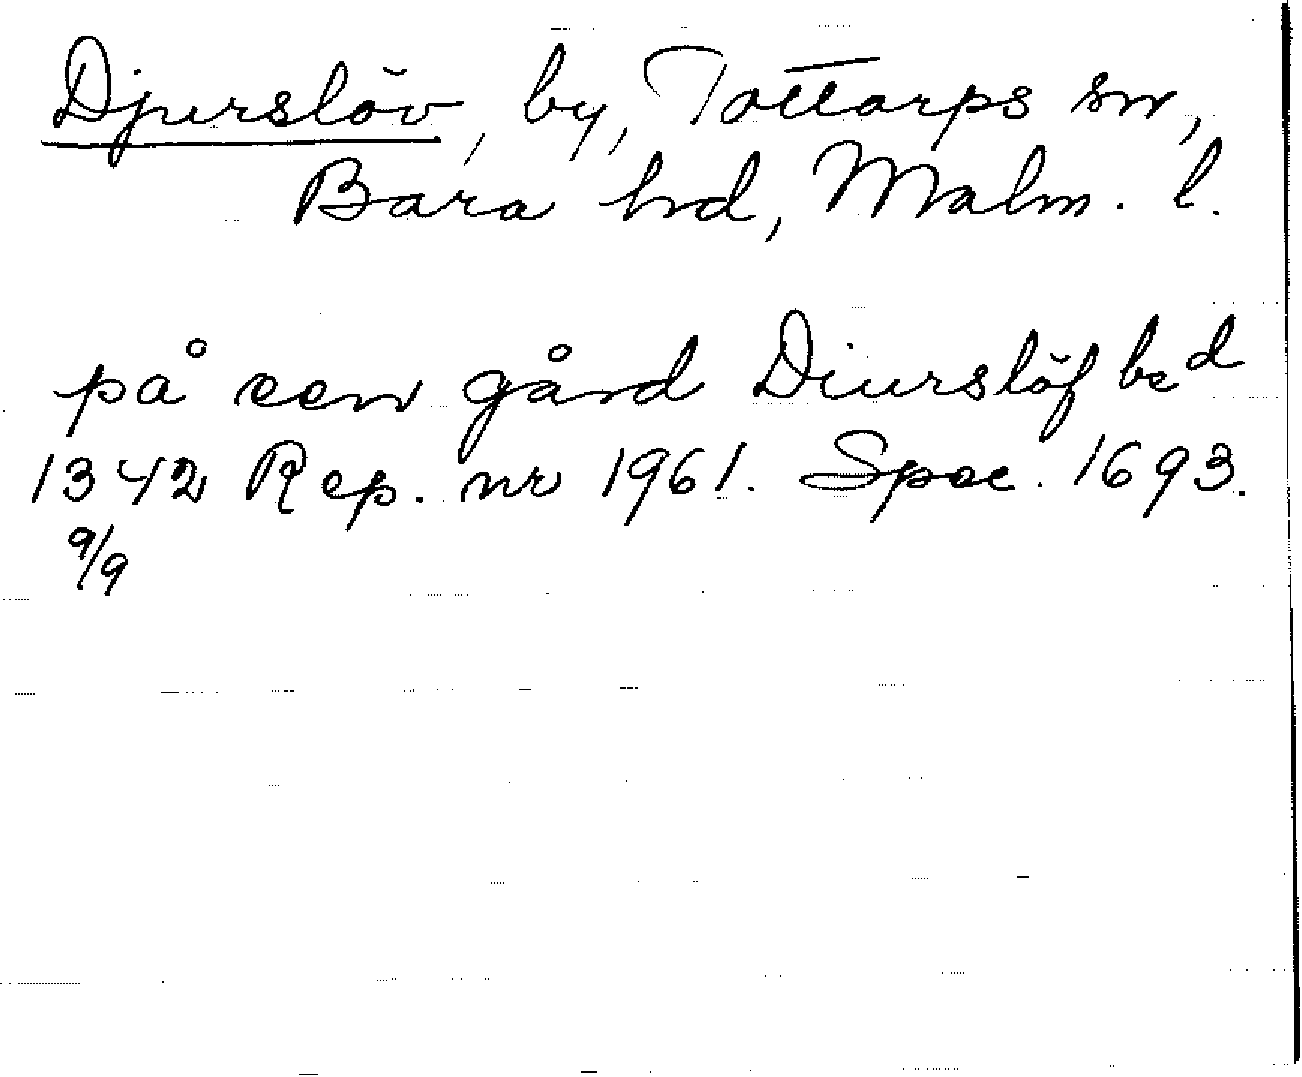 Djurslöv, by, Tottarps sn,
Bara hd, Malm. l.
på een gård Diurslöf bed
1342 Rep. nr 1961. Spec. 1693.
9/9